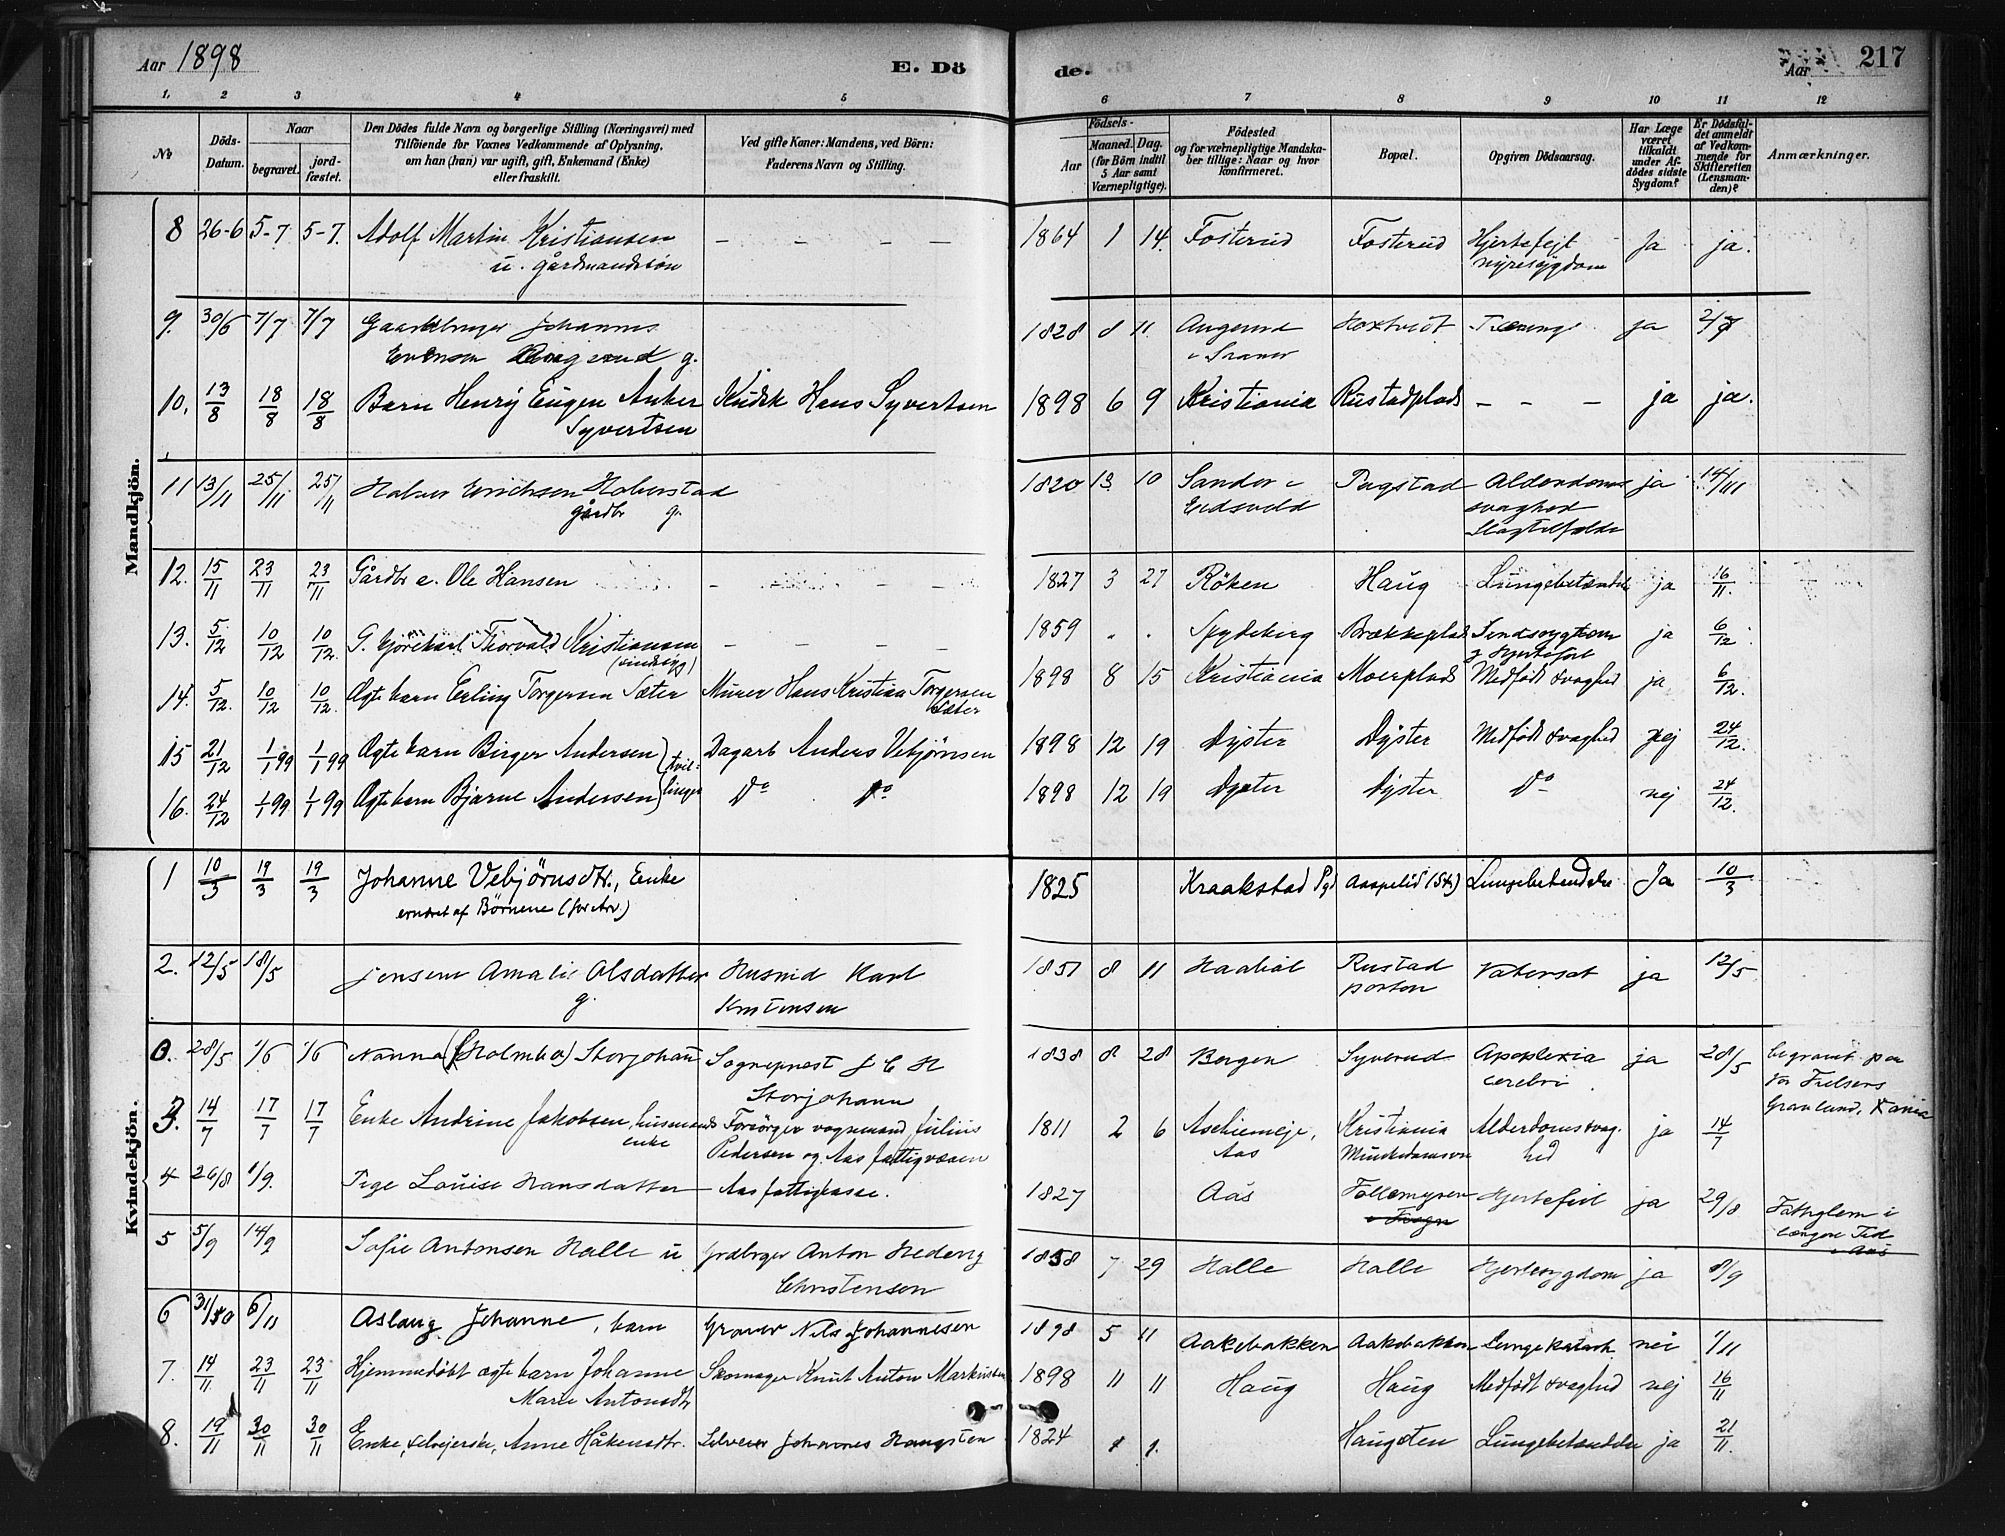 Aar 1898
E. Dö
de.
Aar
217
1. 2 3 4 5
6 7 8 9 10 11 12
No
Döds-Datum.
Naar
begravet. jord-fæstet.
Den Dödes fulde Navn og borgerlige Stilling (Næringsvei) med
Tilföiende for Voxnes Vedkommende af Oplysning,
om han (hun) var ugift, gift, Enkemand (Enke)
eller fraskilt.
Ved gifte Koner: Mandens, ved Börn:
Faderens Navn og Stilling.
Födsels-
Aar
Maaned. Dag.
(for Börn indtil
5 Aar samt
Værnepligtige).
Födested
og for værnepligtige Mandska-
ber tillige: Naar og hvor
konfirmeret.
Bopæl.
Opgiven Dödsaarsag.
Har Læge
været
tilkaldt
under Af-
dödes sidste
Sygdom?
Er Dödsfal-
det anmeldt
af Vedkom-
mende for
Skifteretten
(Lensman-
den)?
Anmærkninger.
Mandkjön.
8 26-6 5-7 5-7. Adolf Martin Kristiansen — — — — 1864 1 14. Fosterud Fosterud Hjertefejl Ja ja.
u. gårdmandssön nyresygdom
9. 30/6 7/7 7/7 Gaardbruger Johannes 1828 8 11 Angerud Hoxtvedt Tæring ja
Evensen g.
10. 13/8 18/8 18/8 Barn Henry Eugen Anker Kudsk Hans Syvertsen 1898 6 9 Kristiania Rustadplads — — — ja ja.
Syvertsen
11 13/11 25/11 25/11 Halvor Erichsen Haberstad 1820 13 10 Sander i Pagstad Alderdoms ja 14/11
gårdbr g. Eidsvold svaghed
Slagtilfælde
12. 15/11 23/11 23/11 Gårdbr e. Ole Hansen — — — — 1827 3 27 Röken Haug Lungebetændel ja 16/11.
13. 5/12 10/12 10/12. G. Kjörekarl Thorvald Kristiansen — — — — 1859 . . Spydeberg Brækkeplads Sindssygdom ja 6/12.
(sindssyg) og Hjertefejl
14. 5/12. 10/12 10/12. Ægte barn Erling Torgersen Sæter Murer Hans Kristian Torgersen 1898 8 15 Kristiania Moerplads Medfödt svaghed ja 6/12.
Sæter
15 21/12 1/1 99 1/1 99 Ægte barn Birger Andersen (tvil- Dagarb Anders Vebjörnsen 1898 12 19 Dyster Dyster Medfödt svaghed nej 24/12.
16. 24/12 1/1 99 1/1 99 Ægte barn Bjarne Andersen) linger Do Do 1898 12 19 Dyster Dyster Do nej 24/12.
Kvindekjön.
1 10/3 19/3 19/3 Johanne Vebjörnsdtr., Enke 1825 Kraakstad Pgd Aaspelid (St) Lungebetændelse Ja 10/3
ernæret af Börnene (for Arv)
2. 12/5 18/5 Jensine Amalie Olsdatter Husmd Karl 1851 8 11 Haaböl Rustad Vatersot ja 12/5
g. Kristensen
28/5 1/6 1/6 Nanna (Holmboe) Storjohann Sognepræst J C H 1838 8 28 Bergen Syverud Apoplexia ja 28/5 begravet paa
Storjohann cerebri Vor Frelsers
Gravlund, Xania
3. 14/7 17/7 17/7 Enke Andrine Jakobsen, husmands Forsörger vognmand Julius 1811 2 6 Aschiemeje, Kristiania Alderdomssvag- ja 14/7
enke Pedersen og Aas fattigvæsen Aas Munkedamsvn hed
4 26/8 1/9. Pige Louise Hansdatter Aas fattigkasse. 1827 Aas Follemyren Hjertefeil ja 29/8 Fattiglem i
længere Tid
i Aas
5 5/9 14/9 Sofie Antonsen Halle u Grdbrger Anton Hedevig 1858 7 29 Halle Halle Hjertesygdom ja 8/9
Christensen
6 31/10 6/11 Aslaug Johanne, barn Graver Nils Johannesen 1898 5 11 Aakebakken Aakebakken Lungekatarrh nei 1/11
7. 14/11 23/11 23/11 Hjemmedöbt ægte barn Johanne Skomager Knut Anton Markussen 1898 11 11 Haug Haug Medfödt svaghed nej 16/11
Marie Antonsdtr
8. 19/11 30/11 30/11 Enke, selvejerske, Anne Håkensdtr. Selveier Johannes Haugsten 1824 1 1. Haugsten Lungebetændelse ja 21/11.